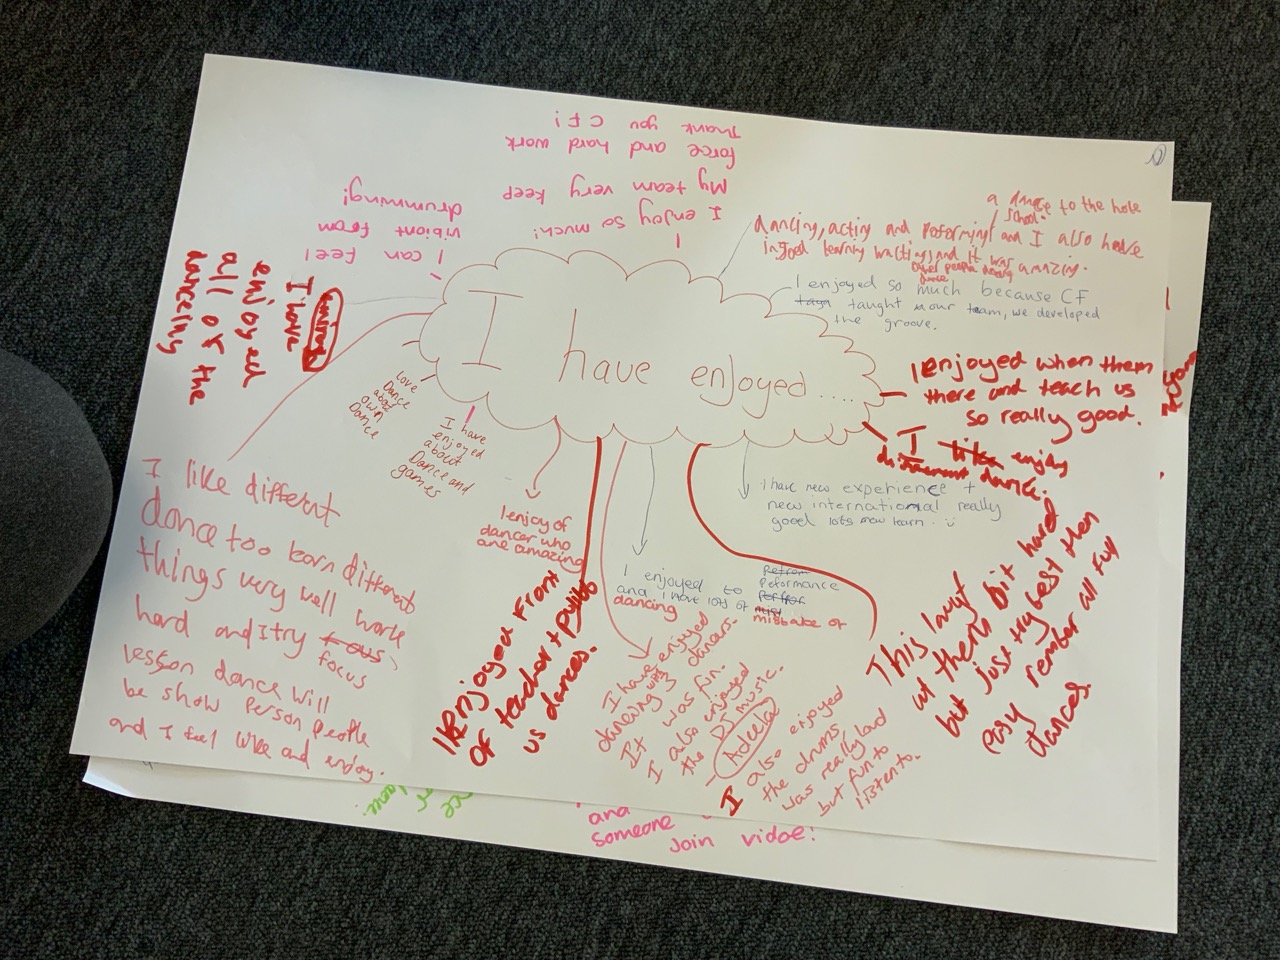 I have enjoyed ....
I enjoy so much!
My team very keep
force and hard work
Thank you CF!
I can feel
vibiont from
drumming!
a dance to the hole
school.
dancing, acting and peforming and I also have
injoed learning walting, and it was amazing.
I enjoyed so much because CF
taught our team, we developed
the groove.
I enjoyed when them
there and teach us
so really good.
I like enjoy
diffrerent dance.
I have new experience +
new international really
good lots new learn. :)
This laugt
but just try best then
easy rember all full
dances.
I enjoyed to Peformance
and I have lots of mistbake of
dancing
I have enjoyed
danceing with dancers.
It was fun.
I also enjoyed
the DJ music.
Adeela
I also enjoyed
the drums,
was really loud
but fun to
listen to.
I enjoyed Front
of teacher + pupils
us dances.
I enjoy of
dancer who
are amazing
I have
enjoyed
about
Dance and
games
Love
Dance
about
own
Dance
I have
enjoyed
all of the
danceing
I like different
dance too learn different
things very well work
hard and I try
focus
lesson dance will
be show person people
and I feel like and enjoy.
and
someone
join vidoe!